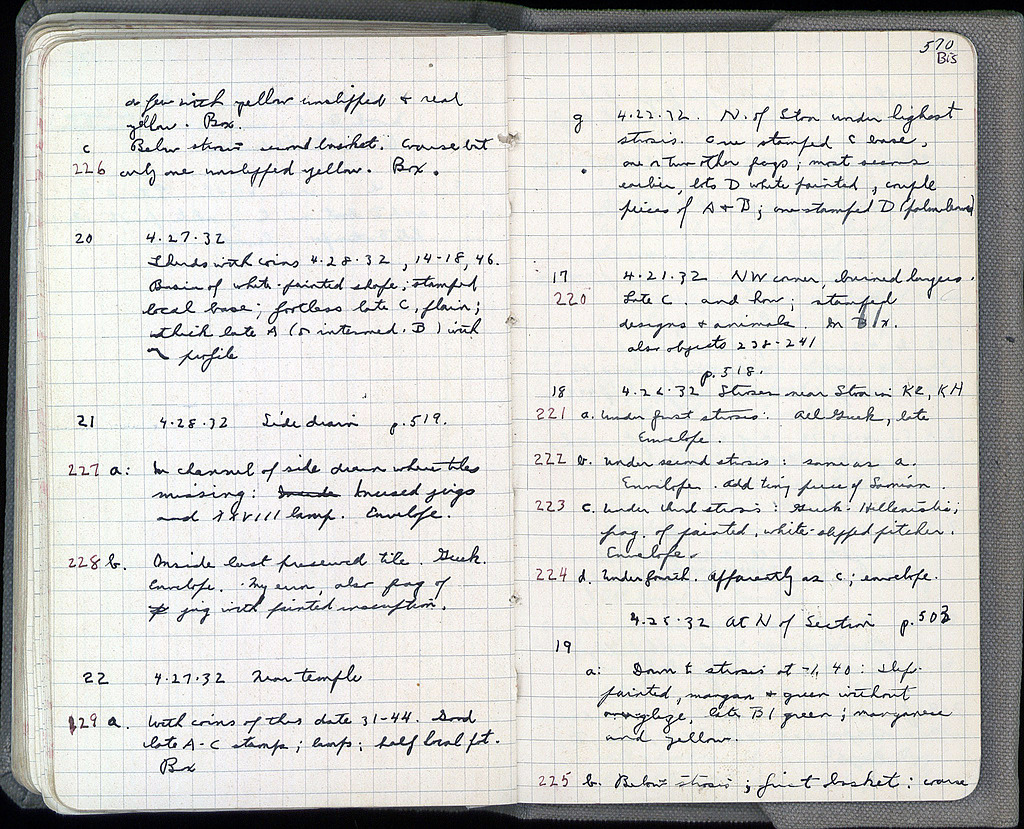 a few with yellow unslipped & real
yellow. Box.
c Below strosis second basket. Coarse but
226 only one unslipped yellow. Box.
20 4.27.32
Sherds with coins 4.28.32, 14-18, 46.
Basin of white-painted shape; stamped
local base; footless late C, plain;
thick late A (or intermed. B) with
profile
21 4.28.32 Side drain p.519.
227 a: In channel of side drain where tiles
missing: Inside bruised jugs
and XXVIII lamp. Envelope.
228 b. Inside last preserved tile. Greek.
Envelope. My error, also frag of
jug with painted inscription.
22 4.27.32 Near temple
129 a. With coins of this date 31-44. Good
late A-C stamps; lamps; half local pt.
Box
570
Bis
g 4.22.32. N. of Stoa under highest
strosis. One stamped C base,
one or two other frags; most seems
earlier, lots D white painted, couple
pieces of A & B; one stamped D (palm branch)
17 4.21.32 NW corner, burned layers.
220 Late C. and how; stamped
designs & animals. In Box.
also objects 238-241
p.518.
18 4.26.32 Stroses near Stoa in KZ, KH
221 a. Under first strosis: All Greek, late
Envelope.
222 b. Under second strosis: same as a.
Envelope. Add tiny piece of Samian.
223 c. Under third strosis: Greek-Hellenistic;
frag. of painted, white-slipped pitcher.
Envelope.
224 d. Under fourth. Apparently as c; envelope.
4.25.32 At N of Section p.503
19
a: Down to strosis at -1,40: slip-
painted, mangan & green without
glaze, late B1 green; manganese
and yellow.
225 b. Below strosis; first basket: coarse